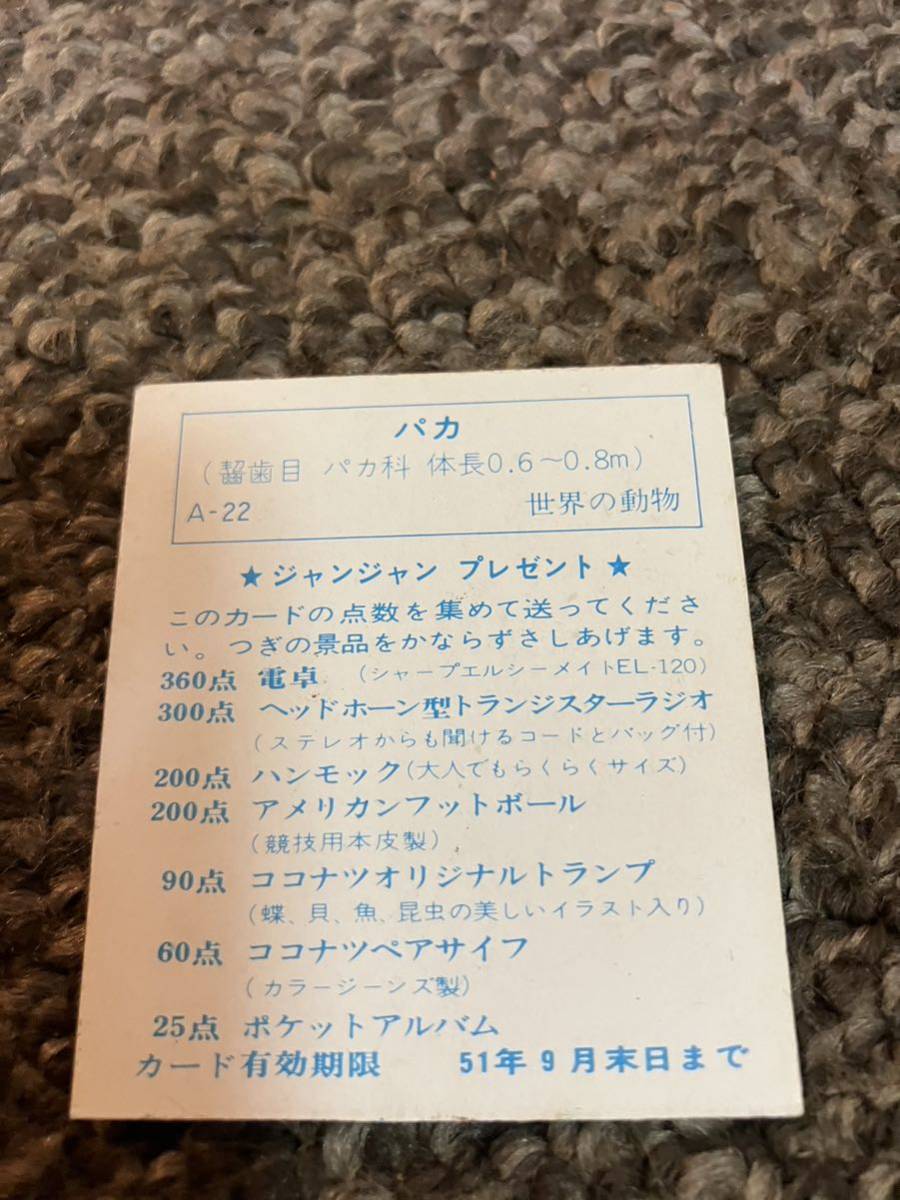 パカ
(齧歯目 パカ科 体長0.6〜0.8m)
A-22 世界の動物
★ ジャンジャン プレゼント ★
このカードの点数を集めて送ってくださ
い。つぎの景品をかならずさしあげます。
360点 電卓 (シャープエルシーメイトEL-120)
300点 ヘッドホーン型トランジスターラジオ
(ステレオからも聞けるコードとバッグ付)
200点 ハンモック(大人でもらくらくサイズ)
200点 アメリカンフットボール
(競技用本皮製)
90点 ココナツオリジナルトランプ
(蝶、貝、魚、昆虫の美しいイラスト入り)
60点 ココナツペアサイフ
(カラージーンズ製)
25点 ポケットアルバム
カード有効期限 51年9月末日まで